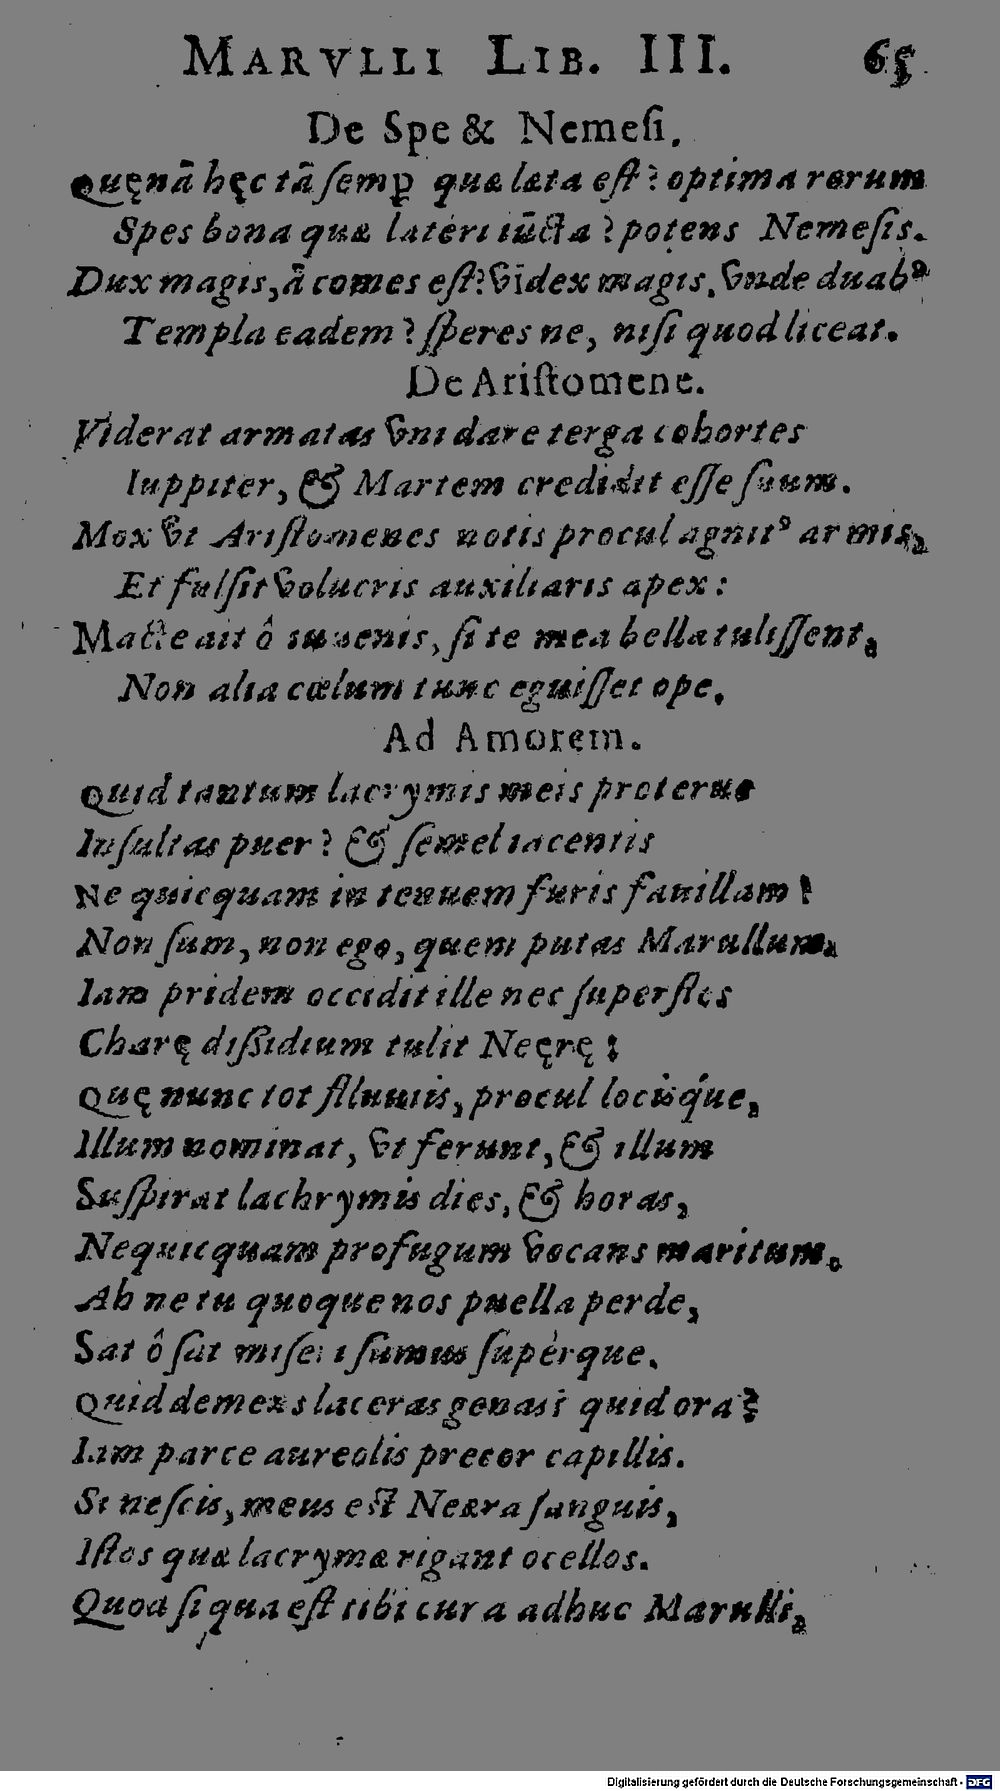 MARVLLI LIB. III. 65
De Spe & Nemeſi.
Quęnā hęc tā ſemꝑ quæ læta eſt? optima rerum
Spes bona quæ lateri iūcta? potens Nemeſis.
Dux magis, ā comes eſt? vīdex magis. vnde duabꝰ
Templa eadem? ſperes ne, niſi quod liceat.
De Ariſtomene.
Viderat armatas vni dare terga cohortes
Iuppiter, & Martem credidit eſſe ſuum.
Mox vt Ariſtomenes notis procul agnitꝰ armis,
Et fulſit volucris auxiliaris apex:
Macte ait ô iuuenis, ſi te mea bella tuliſſent,
Non alia cœlum tunc eguiſſet ope.
Ad Amorem.
Quid tantum lacrymis meis proterue
Inſultas puer? & ſemel iacentis
Ne quicquam in tenuem furis fauillam!
Non ſum, non ego, quem putas Marullum.
Iam pridem occidit ille nec ſuperſtes
Charę diſſidium tulit Neęrę:
Quę nunc tot fluuiis, procul locisq́ue,
Illum nominat, vt ferunt, & illum
Suſpirat lachrymis dies, & horas,
Nequicquam profugum vocans maritum.
Ah ne tu quoque nos puella perde,
Sat ô ſat miſeri ſumus ſupèrque.
Quid demens laceras genas? quid ora?
Iam parce aureolis precor capillis.
Si neſcis, meus eſt Neæra ſanguis,
Iſtos quæ lacrymæ rigant ocellos.
Quod ſi qua eſt tibi cura adhuc Marulli,
Digitalisierung gefördert durch die Deutsche Forschungsgemeinschaft - DFG